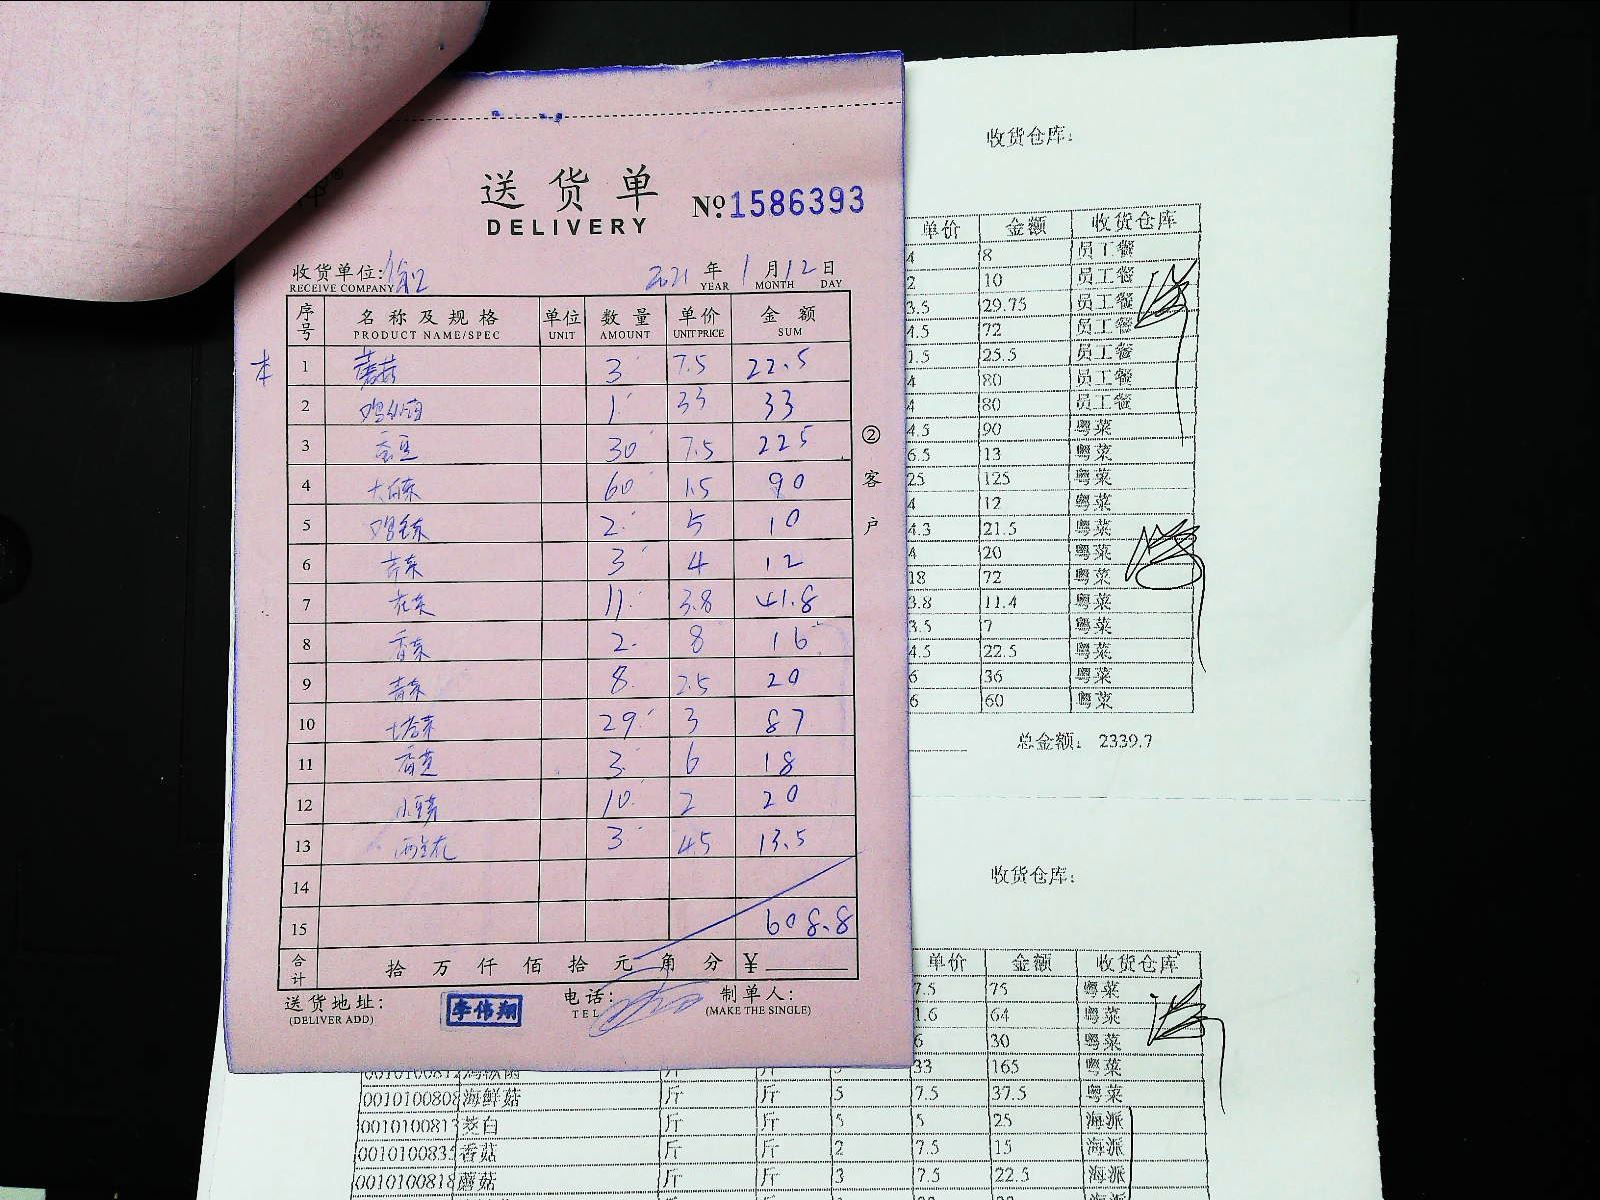 送货单
DELIVERY
№ 1586393
收货单位:
RECEIVE COMPANY
2021 年 1 月 12 日
YEAR MONTH DAY
序号 名称及规格 单位 数量 单价 金额
PRODUCT NAME/SPEC UNIT AMOUNT UNIT PRICE SUM
本 1 蘑菇 3 7.5 22.5
2 1 33 33
3 蚕豆 30 7.5 225
4 大白菜 60 1.5 90
5 2 5 10
6 芹菜 3 4 12
7 花菜 11 3.8 41.8
8 香菜 2 8 16
9 青菜 8 2.5 20
10 塔菜 29 3 87
11 3 6 18
12 10 2 20
13 西兰花 3 4.5 13.5
14
15 608.8
合计 拾 万 仟 佰 拾 元 角 分 ¥
送货地址: 电话: 制单人:
(DELIVER ADD) TEL (MAKE THE SINGLE)
李伟翔
②客户
收货仓库:
单价 金额 收货仓库
4 8 员工餐
2 10 员工餐
3.5 29.75 员工餐
4.5 72 员工餐
1.5 25.5 员工餐
4 80 员工餐
4 80 员工餐
4.5 90 粤菜
6.5 13 粤菜
25 125 粤菜
4 12 粤菜
4.3 21.5 粤菜
4 20 粤菜
18 72 粤菜
3.8 11.4 粤菜
3.5 7 粤菜
4.5 22.5 粤菜
6 36 粤菜
6 60 粤菜
总金额: 2339.7
收货仓库:
单价 金额 收货仓库
7.5 75 粤菜
1.6 64 粤菜
6 30 粤菜
33 165 粤菜
0010100808 海鲜菇 斤 斤 5 7.5 37.5 粤菜
0010100813 茭白 斤 斤 5 5 25 海派
0010100835 香菇 斤 斤 2 7.5 15 海派
0010100818 蘑菇 斤 斤 3 7.5 22.5 海派